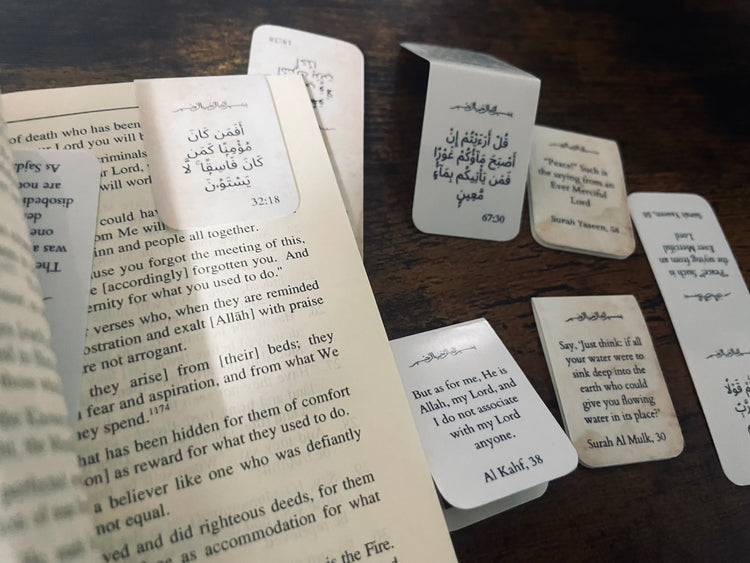 of death who has been
r Lord you will b
criminals
ur Lord,
will work
could ha
om Me will
inn and people all together.
use you forgot the meeting of this,
e [accordingly] forgotten you. And
ernity for what you used to do."
verses who, when they are reminded
ostration and exalt [Allāh] with praise
re not arrogant.
they arise] from [their] beds; they
fear and aspiration, and from what We
hey spend.1174
hat has been hidden for them of comfort
on] as reward for what they used to do.
a believer like one who was defiantly
not equal.
ved and did righteous deeds, for them
e as accommodation for what
is the Fire.
As Sajd
are not
disobedi
one
was a
The
أَفَمَن كَانَ
مُؤْمِنًا كَمَن
كَانَ فَاسِقًا ۚ لَّا
يَسْتَوُۥنَ
32:18
قُلْ أَرَءَيْتُمْ إِنْ
أَصْبَحَ مَآؤُكُمْ غَوْرًا
فَمَن يَأْتِيكُم بِمَآءٍ
مَّعِينٍۭ
67:30
"Peace!" Such is
the saying from an
Ever Merciful
Lord
Surah Yaseen, 58
Surah Yaseen, 58
"Peace!" Such is
the saying from an
Ever Merciful
Lord
But as for me, He is
Allah, my Lord, and
I do not associate
with my Lord
anyone.
Al Kahf, 38
Say, 'Just think: if all
your water were to
sink deep into the
earth who could
give you flowing
water in its place?'
Surah Al Mulk, 30